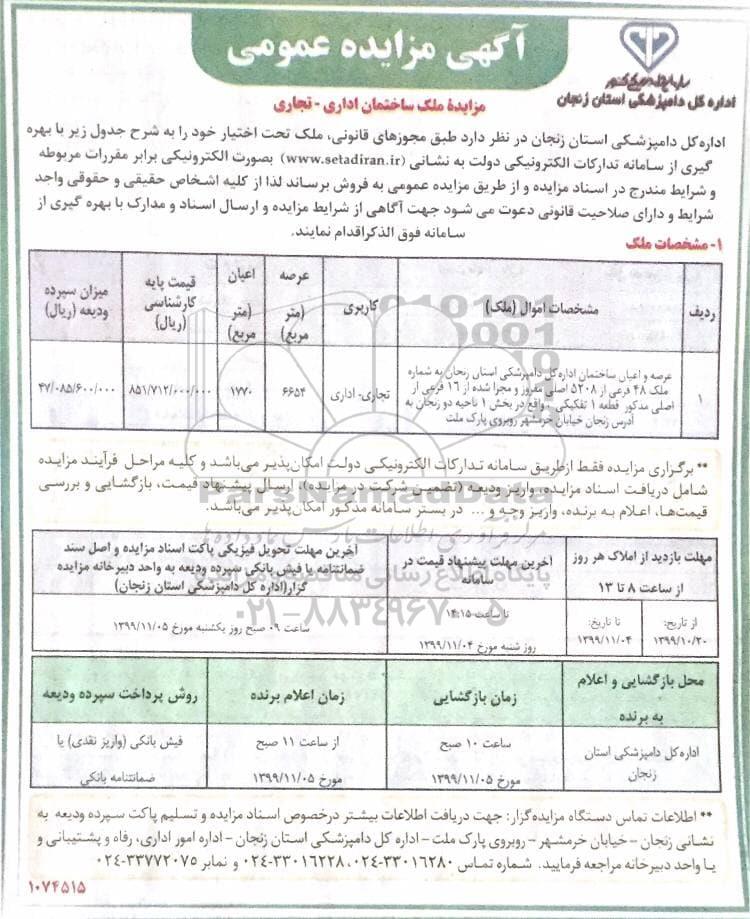 آگهی مزایده عمومی
اداره کل دامپزشکی استان زنجان
مزایدهٔ ملک ساختمان اداری - تجاری
اداره کل دامپزشکی استان زنجان در نظر دارد طبق مجوزهای قانونی، ملک تحت اختیار خود را به شرح جدول زیر با بهره
گیری از سامانه تدارکات الکترونیکی دولت به نشانی (www.setadiran.ir) بصورت الکترونیکی برابر مقررات مربوطه
و شرایط مندرج در اسناد مزایده و از طریق مزایده عمومی به فروش برساند لذا از کلیه اشخاص حقیقی و حقوقی واجد
شرایط و دارای صلاحیت قانونی دعوت می شود جهت آگاهی از شرایط مزایده و ارسال اسناد و مدارک با بهره گیری از
سامانه فوق الذکر اقدام نمایند.
۱- مشخصات ملک
ردیف
مشخصات اموال (ملک)
کاربری
عرصه (متر مربع)
اعیان (متر مربع)
قیمت پایه کارشناسی (ریال)
میزان سپرده ودیعه (ریال)
۱
عرصه و اعیان ساختمان اداره کل دامپزشکی استان زنجان به شماره
ملک ۴۸ فرعی از ۵۲۰۸ اصلی مفروز و مجزا شده از ۱۶ فرعی از
اصلی مذکور قطعه ۱ تفکیکی واقع در بخش ۱ ناحیه دو زنجان به
آدرس زنجان خیابان خرمشهر روبروی پارک ملت
تجاری- اداری
۶۶۵۴
۱۷۷۰
۸۵۱/۷۱۲/۰۰۰/۰۰۰
۴۷/۰۸۵/۶۰۰/۰۰۰
** برگزاری مزایده فقط ازطریق سامانه تدارکات الکترونیکی دولت امکان‌پذیر می‌باشد و کلیه مراحل فرآیند مزایده
شامل دریافت اسناد مزایده، واریز ودیعه (تضمین شرکت در مزایده)، ارسال پیشنهاد قیمت، بازگشایی و بررسی
قیمت‌ها، اعلام به برنده، واریز وجه و ... در بستر سامانه مذکور امکان‌پذیر می‌باشد.
ParsNamadData
پایگاه اطلاع رسانی مناقصه و مزایده
۰۲۱-۸۸۳۴۹۶۷۰-۵
مهلت بازدید از املاک هر روز
از ساعت ۸ تا ۱۳
آخرین مهلت پیشنهاد قیمت در
سامانه
آخرین مهلت تحویل فیزیکی پاکت اسناد مزایده و اصل سند
ضمانتنامه یا فیش بانکی سپرده ودیعه به واحد دبیرخانه مزایده
گزار(اداره کل دامپزشکی استان زنجان)
از تاریخ:
۱۳۹۹/۱۰/۲۰
تا تاریخ:
۱۳۹۹/۱۱/۰۴
تا ساعت ۱۴:۱۵
روز شنبه مورخ ۱۳۹۹/۱۱/۰۴
ساعت ۰۹ صبح روز یکشنبه مورخ ۱۳۹۹/۱۱/۰۵
محل بازگشایی و اعلام
به برنده
زمان بازگشایی
زمان اعلام برنده
روش پرداخت سپرده ودیعه
اداره کل دامپزشکی استان
زنجان
ساعت ۱۰ صبح
مورخ ۱۳۹۹/۱۱/۰۵
از ساعت ۱۱ صبح
مورخ ۱۳۹۹/۱۱/۰۵
فیش بانکی (واریز نقدی) یا
ضمانتنامه بانکی
** اطلاعات تماس دستگاه مزایده‌گزار: جهت دریافت اطلاعات بیشتر درخصوص اسناد مزایده و تسلیم پاکت سپرده ودیعه به
نشانی زنجان - خیابان خرمشهر - روبروی پارک ملت - اداره کل دامپزشکی استان زنجان - اداره امور اداری، رفاه و پشتیبانی و
یا واحد دبیرخانه مراجعه فرمایید. شماره تماس ۳۳۰۱۶۲۸۰-۰۲۴، ۳۳۰۱۶۲۲۸-۰۲۴ و نمابر ۳۳۷۷۲۰۷۵-۰۲۴
۱۰۷۴۵۱۵